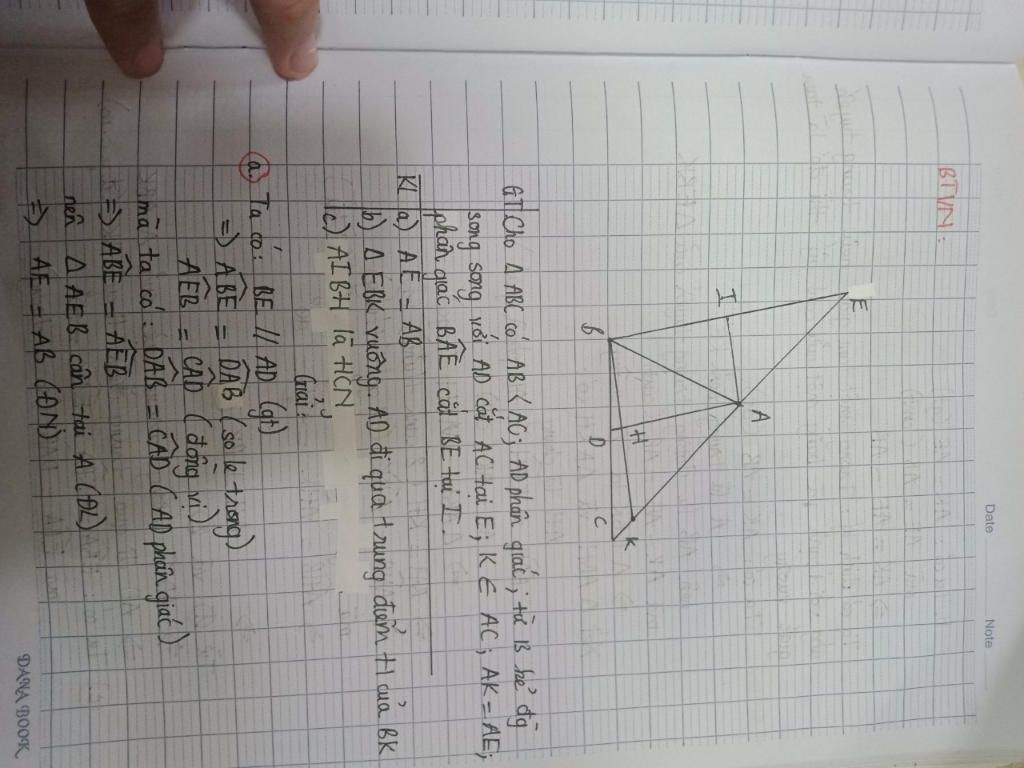 Date
Note
BTVN:
E
I
A
B
H
D
K
C
GT Cho Δ ABC có AB < AC; AD phân giác; từ B kẻ đg
song song với AD cắt AC tại E; K ∈ AC; AK = AE;
phân giác BAE cắt BE tại I.
KL a) AE = AB
b) Δ EBK vuông. AD đi qua trung điểm H của BK
c) AIBH là HCN
Giải:
a. Ta có: BE // AD (gt)
=) ABE = DAB (so le trong)
AEB = CAD (đồng vị)
mà ta có: DAB = CAD (AD phân giác)
=) ABE = AEB
nên Δ AEB cân tại A (ĐL)
=) AE = AB (ĐN)
DANA BOOK